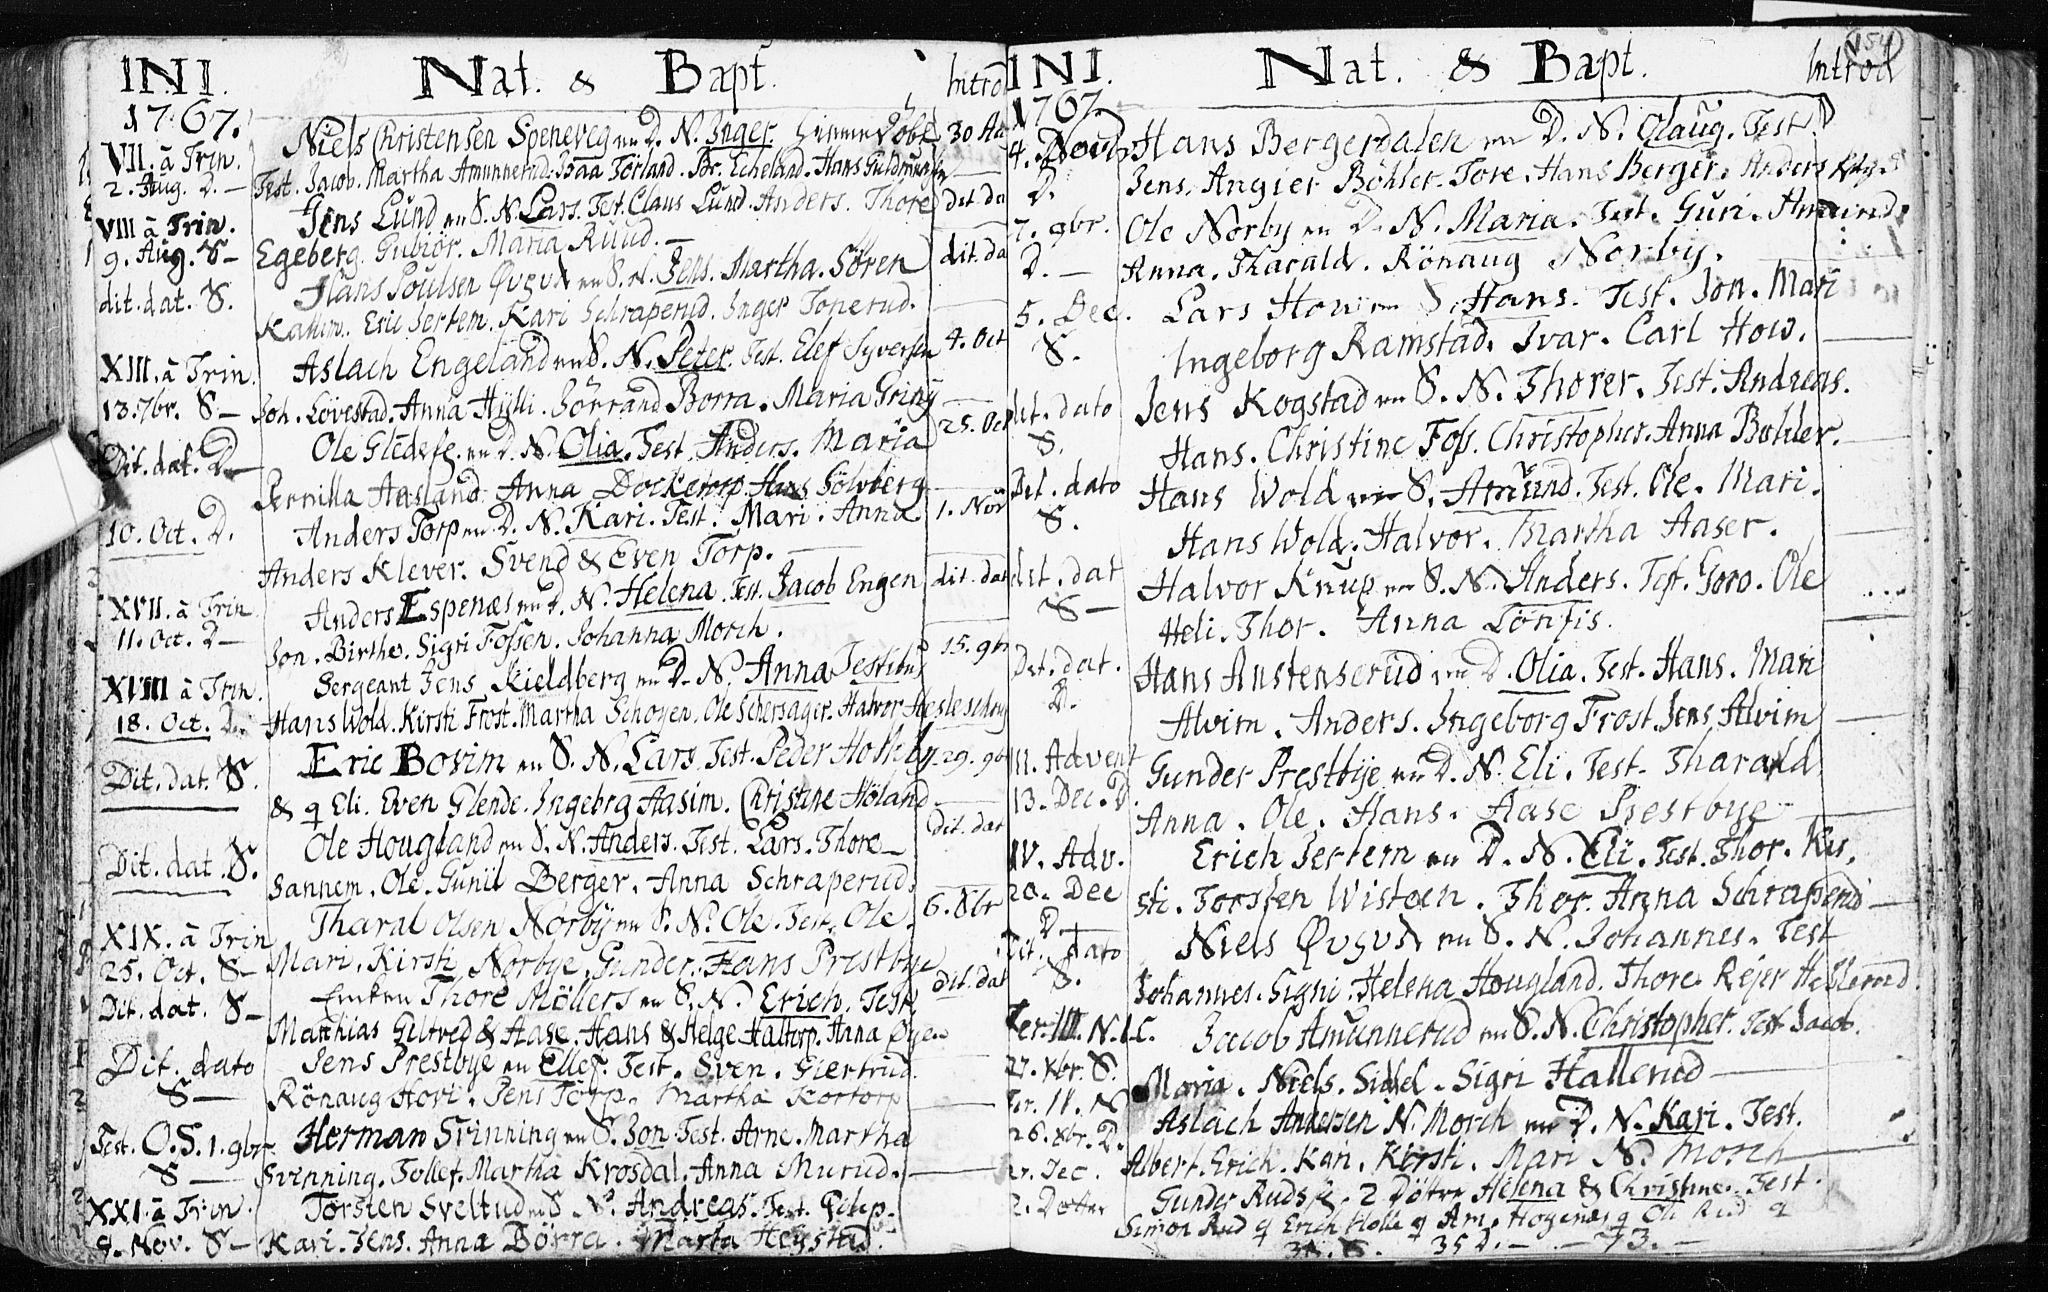 INI. Nat. & Bapt. Introd
1767.
VII. à Trin. Niels Christensen Speneveg en D. N. Inger. 30 Au
2. Aug. D. — Test. Jacob. Martha Amunnerud. Torland. Echeland. Hans
VIII à Trin. Jens Lund en S. N. Lars. Test. Claus Lund. Anders. Thore dit. da
9. Aug. S — Egeberg. Gubiör. Maria Ruud. —
dit. dat. S. Hans Poulsen en S. N. Jens. Martha. Sören dit. da
Eric Jertem. Kari Schraperud. Inger Tonerud.
XIII. à Trin. Aslach Engeland en S. N. Peter. Test. Elef Syversen 4. Oct
13. 7br. S — Joh. Lövestad. Anna Hylli. Borra. Maria Griny
Ole en D. N. Olia. Test. Anders. Maria 25. Oct
Dit. dat. D — Pernilla Aasland. Anna Hans Sölvberg
Anders Torp en D. N. Kari. Test. Mari. Anna 1. Nov
10. Oct. D. Anders Klever. Svend & Even Torp. —
XVII. à Trin Anders Espenæs en D. N. Helena. Test. Jacob Engen dit. dat
11. Oct. D — Jon. Birthe. Sigri Fossen. Johanna Morch.
XVIII à Trin. Sergeant Jens Kieldberg en D. N. Anna Testibus 15. 9br
18. Oct. D. Hans Wold. Kirsti Frost. Martha Schoyen. Ole Schersager. Halvor
Dit. dat. S. Eric Bovim en S. N. Lars. Test. Peder Holteby. 29. 9br
& q Eli. Even Glende. Ingebrg Aasim. Christine Höland
Dit. dat. S. Ole Hougland en S. N. Anders. Test. Lars. Thore — Dit. dat
Sannem. Ole. Gunil Berger. Anna Schraperud.
XIX. à Trin Tharal Olsen Norby en S. N. Ole. Test. Ole. 6. Xbr
25. Oct. S — Mari. Kirsti Norbye. Gunder. Hans Prestbye
Dit. dat. S — Enken Thore Möllers en S. N. Erich. Test dit. dat
Matthias Giltved & Aase. Hans & Helge Haltorp. Anna
Dit. dato Jens Prestbye en Ellef. Test. Sven. Giertrud.
S — Rönaug Hovi. Jens Torp. Martha Kortorp
Test. O. S. 1. 9br. Herman Svinning en S. Jon. Test. Arne. Martha
S — Svenning. Tollef. Martha Krosdal. Anna Murud. —
XXI. à Trin. Torsten Sveltud en S N. Andreas. Test.
9. Nov. S — Kari. Jens. Anna Börra. Marta Heystad.
INI. Nat. & Bapt. Introd
1767. 154
4. Novb. Hans Bergerdalen en D. N. Olaug. Test.
D. Jens. Angier Böhler. Tore. Hans Berger. Anders
7. 9br. Ole Norby en D. N. Maria. Test. Guri. Amund.
D. — Anna. Tharald. Rönaug Norby.
5. Dec. Lars How en S. Hans. Test. Jon. Mari
S. Ingeborg Ramstad. Ivar. Carl How.
dit. dato Jens Kogstad en S. N. Thorer. Test. Andreas.
S. Hans. Christine Foss. Christopher. Anna Buhler.
Dit. dato Hans Wold en S. Amund. Test. Ole. Mari.
S. Hans Wold. Halvor. Martha Aaser.
dit. dat Halvor Knup en S. N. Anders. Test. Goro. Ole
S — Heli. Thor. Anna
Dit. dat. Hans Anstenserud en D. Olia. Test. Hans. Mari
D. Alvim. Anders. Ingeborg Frost. Jens Alvim
III. Advent Gunder Prestbye en D. N. Eli. Test. Tharald
13. Dec. D. Anna. Ole. Hans. Aase Prestbye
IV. Adv. Erich Jertem en D. N. Eli. Test. Thor. Kir,
20. Dec sti. Torsten Wisteen. Thor. Anna Schraperud —
D
Dit. dato Niels en S. N. Johannes. Test
S. Johannes. Signi. Helena Hougland. Thore. Rejer
Fer. III. N. C. Jacob Amunnerud en S. N. Christopher. Test Jacob.
27. Xbr. S. Maria. Niels. Sidsel. Sigri Hallerud —
Fer. II. N Aslach Andersen N. Morch en D. N. Kari. Test.
26. Xbr. D. Albert. Erich. Kari. Kirsti. Mari N. Morch
27. Dec. Gunder Ruds 2 Dötre Helena & Christine. Test.
2. Dotter Simon Rud q Erich Holle q q Ole Rud q
38. S. 35 D. — — 73. —